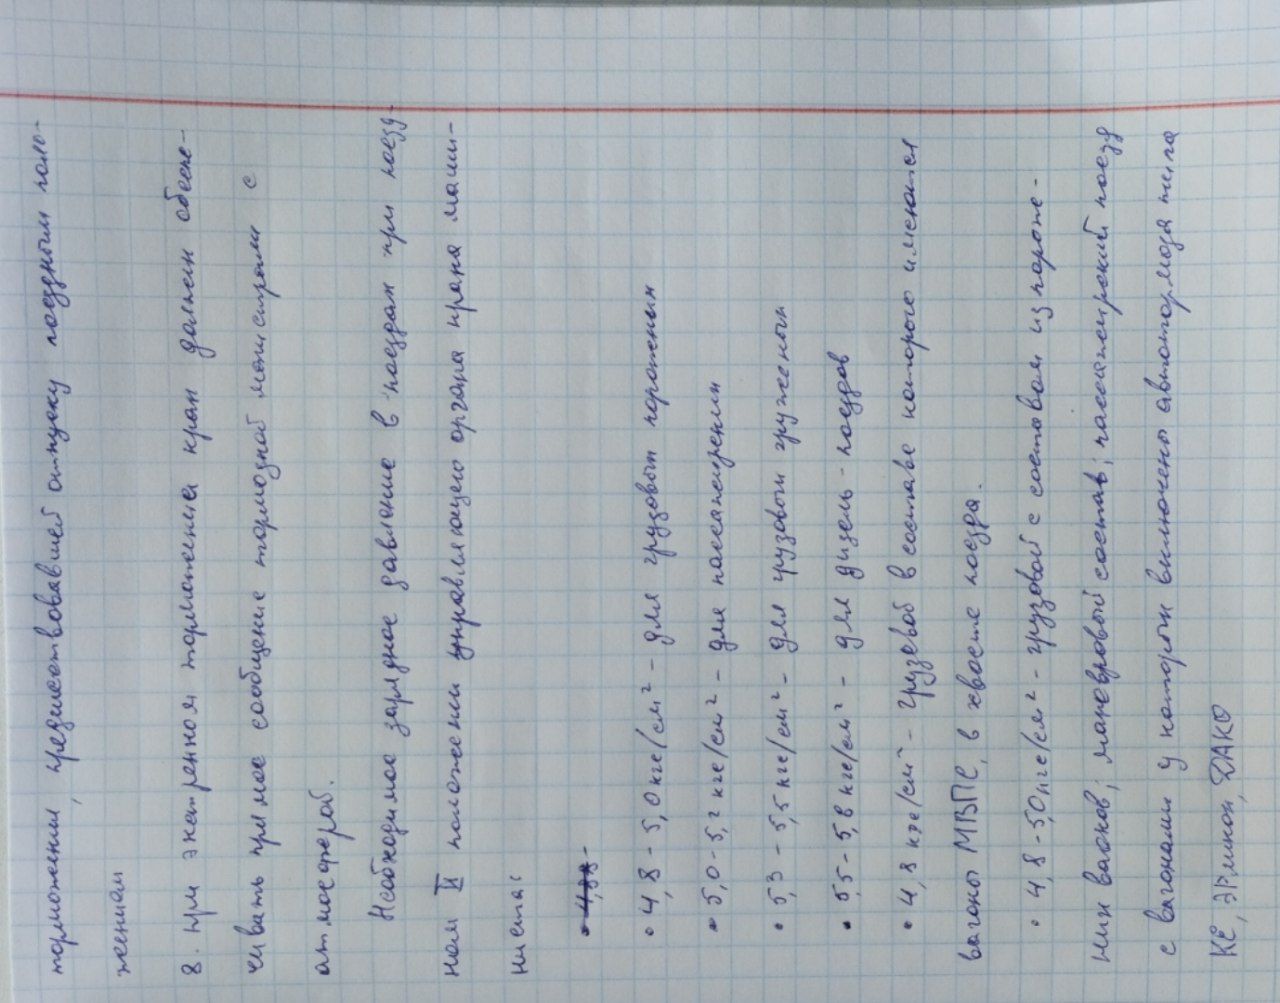 торможении, предшествовавшей отпуску поездным поло-
жением
8. при экстренном торможении кран должен обеспе-
чивать прямое сообщение тормозной магистрали с
атмосферой.
Необходимое зарядное давление в поездах при поезд-
ном II положении управляющего органа крана маши-
ниста:
• 4,8 - 5,0 кгс/см² - для грузовым порожным
• 5,0 - 5,2 кгс/см² - для пассажирским
• 5,3 - 5,5 кгс/см² - для грузовым груженым
• 5,5 - 5,8 кгс/см² - для дизель-поездов
• 4,8 кгс/см² - грузовой в составе которого имеются
вагоны МВПС, в хвосте поезда.
• 4,8 - 5,0 кгс/см² - грузовой с составом из порож-
них вагонов; маневровый состав; пассажирский поезд
с вагонами у которым включены автотормоза типа
КЕ, Эрликон, ДАКО